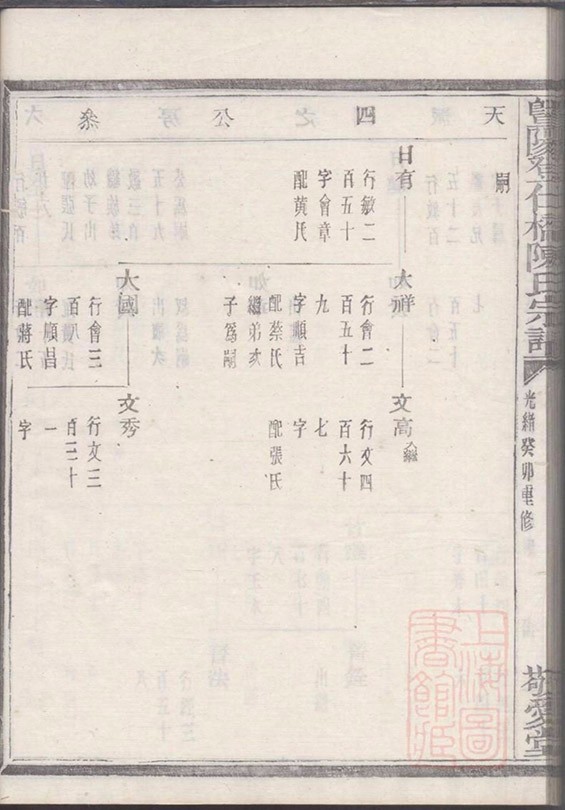 暨陽登仕橋陳氏宗譜
光緒癸卯重修
敬愛堂
天 四 公 叅
嗣
日有
行敏二
百五十
字會章
配黄氏
大祥
行會二
百五十
九
字順吉
配蔡氏
繼弟次
子爲嗣
大國
行會三
百八
字順昌
配蔣氏
文高
行文四
百六十
七
字
配張氏
文秀
行文三
百三十
一
字
上海圖
書館藏